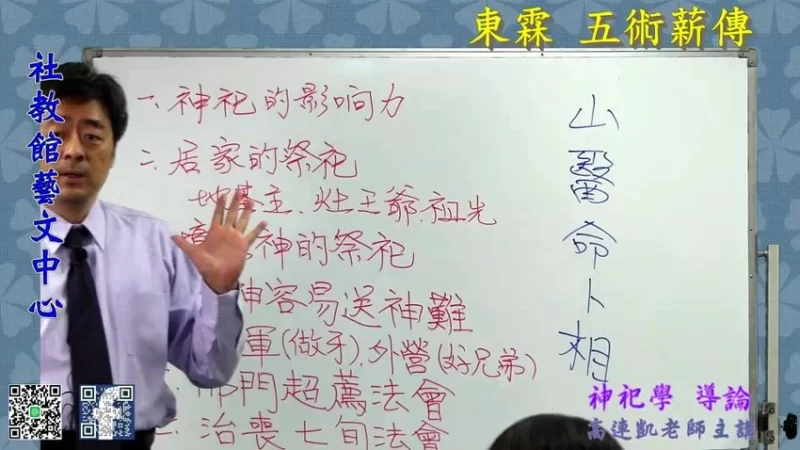 東霖 五術薪傳
社教館藝文中心
一、神祀的影响力
二、居家的祭祀
地基主、灶王爺、祖先
神的祭祀
神容易送神難
軍(做牙)、外營(好兄弟)
門超薦法會
治喪七旬法會
山
醫
命
卜
相
神祀學 導論
高連凱老師主講